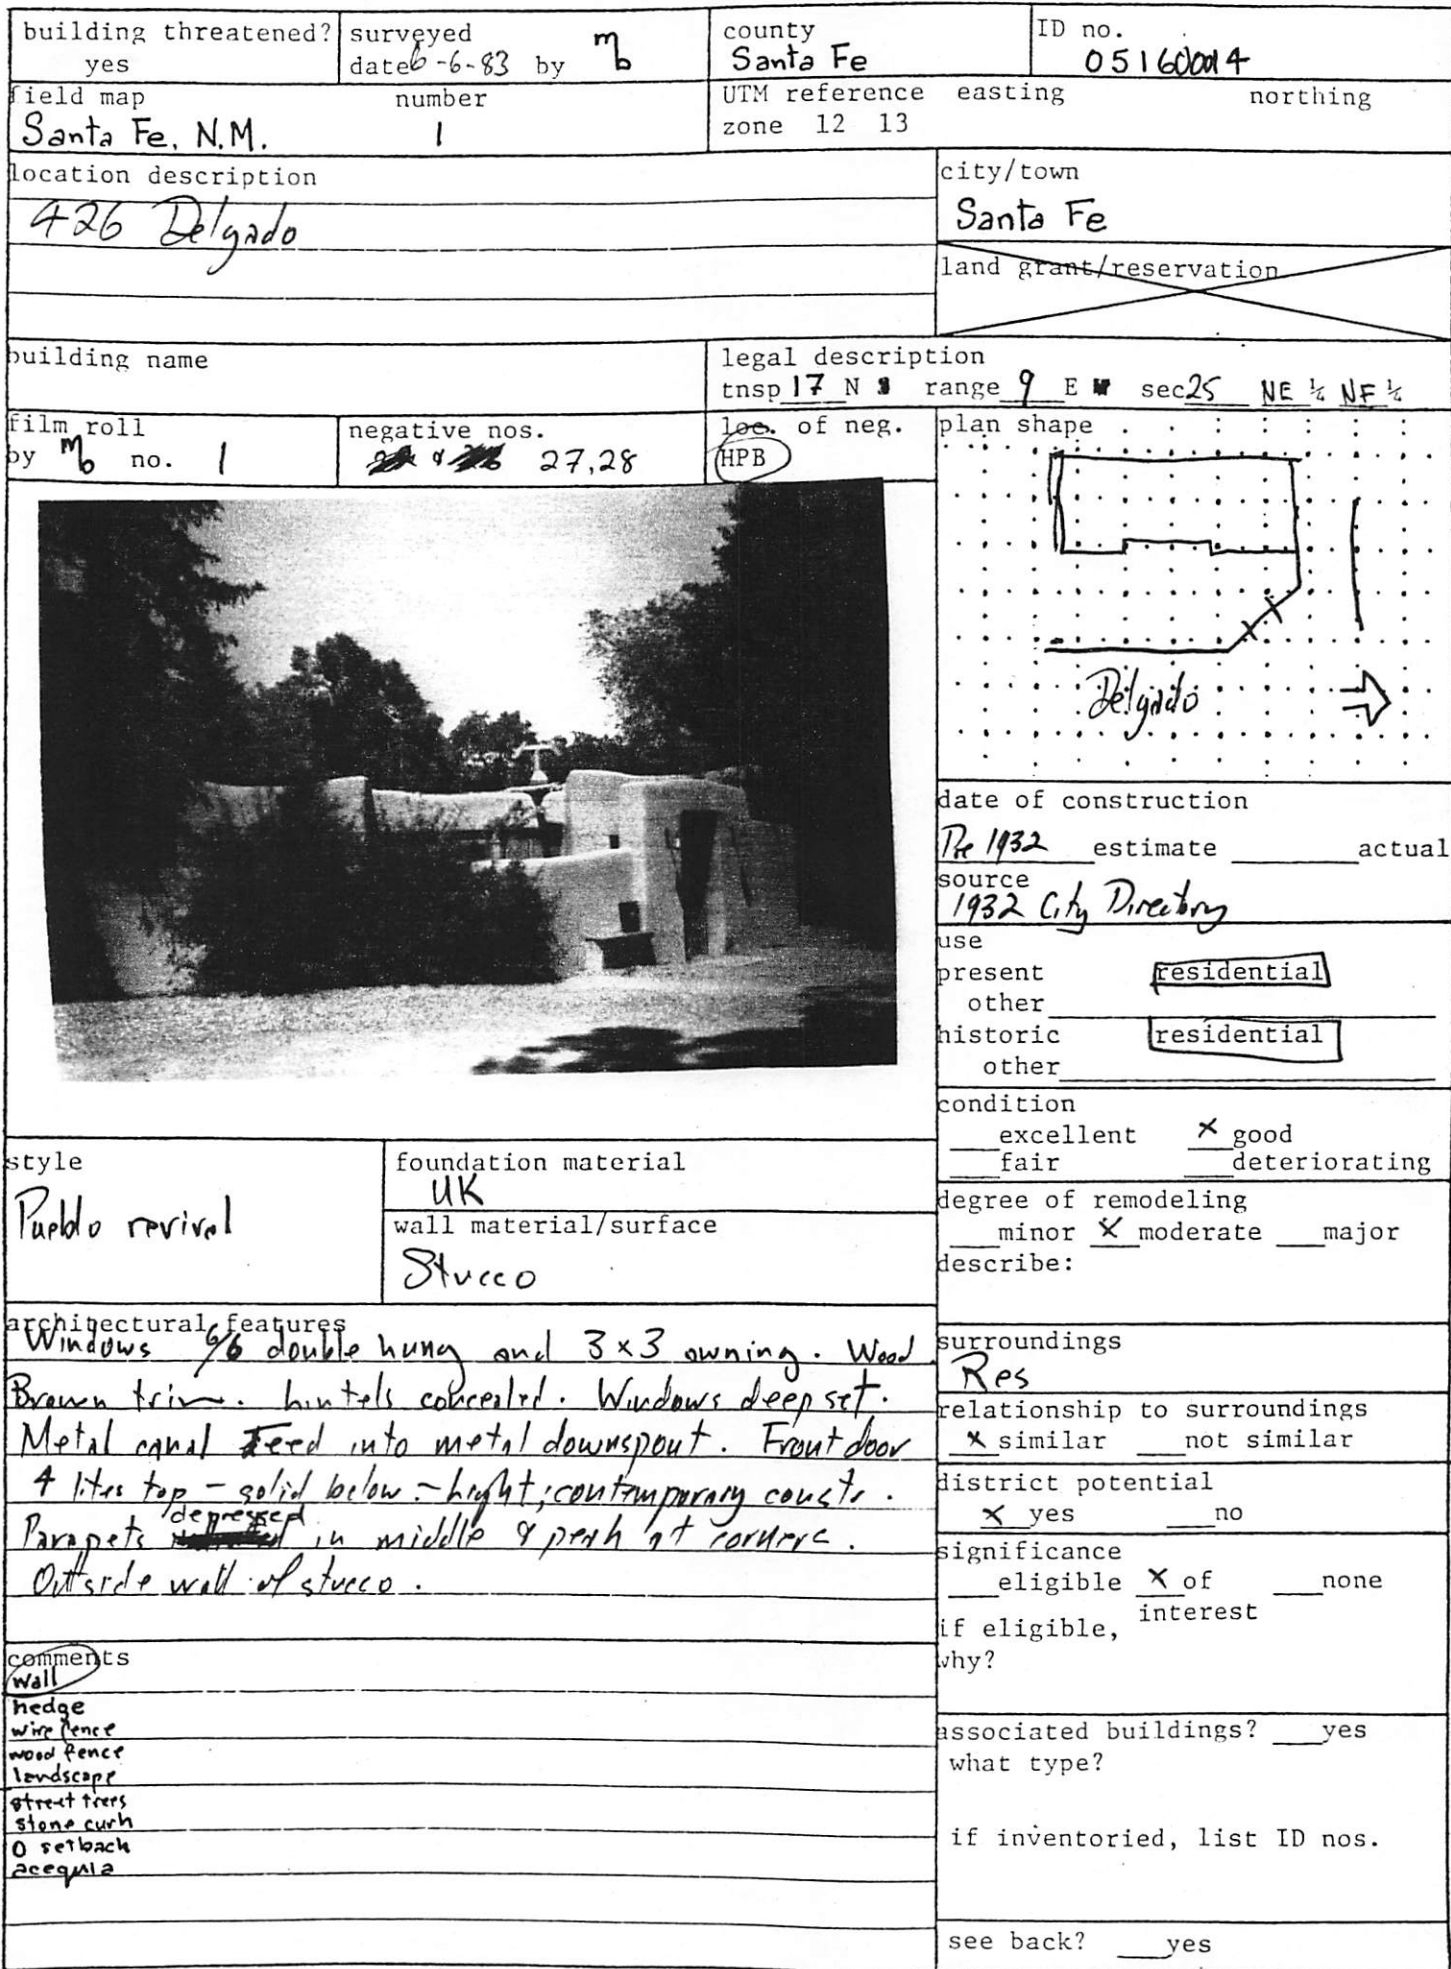 building threatened? yes
surveyed date 6-6-83 by mb
county Santa Fe
ID no. 051600014
field map Santa Fe, N.M.
number 1
UTM reference easting northing
zone 12 13
location description
426 Delgado
city/town
Santa Fe
land grant/reservation
building name
legal description
tnsp 17 N range 9 E sec 25 NE ¼ NE ¼
film roll
by mb no. 1
negative nos.
27,28
loc. of neg.
HPB
plan shape
Delgado
date of construction
Pre 1932 estimate actual
source
1932 City Directory
use
present residential
other
historic residential
other
condition
excellent X good
fair deteriorating
style
Pueblo revival
foundation material
UK
wall material/surface
Stucco
degree of remodeling
minor X moderate major
describe:
architectural features
Windows 6/6 double hung and 3x3 owning. Wood.
Brown trim. Lintels concealed. Windows deep set.
Metal canal feed into metal downspout. Front door
4 lites top - solid below - height; contemporary constr.
Parapets depressed in middle & peak at corners.
Outside wall of stucco.
surroundings
Res
relationship to surroundings
X similar not similar
district potential
X yes no
significance
eligible X of interest none
if eligible,
why?
comments
wall
hedge
wire fence
wood fence
landscape
street trees
stone curb
0 setback
acequia
associated buildings? yes
what type?
if inventoried, list ID nos.
see back? yes